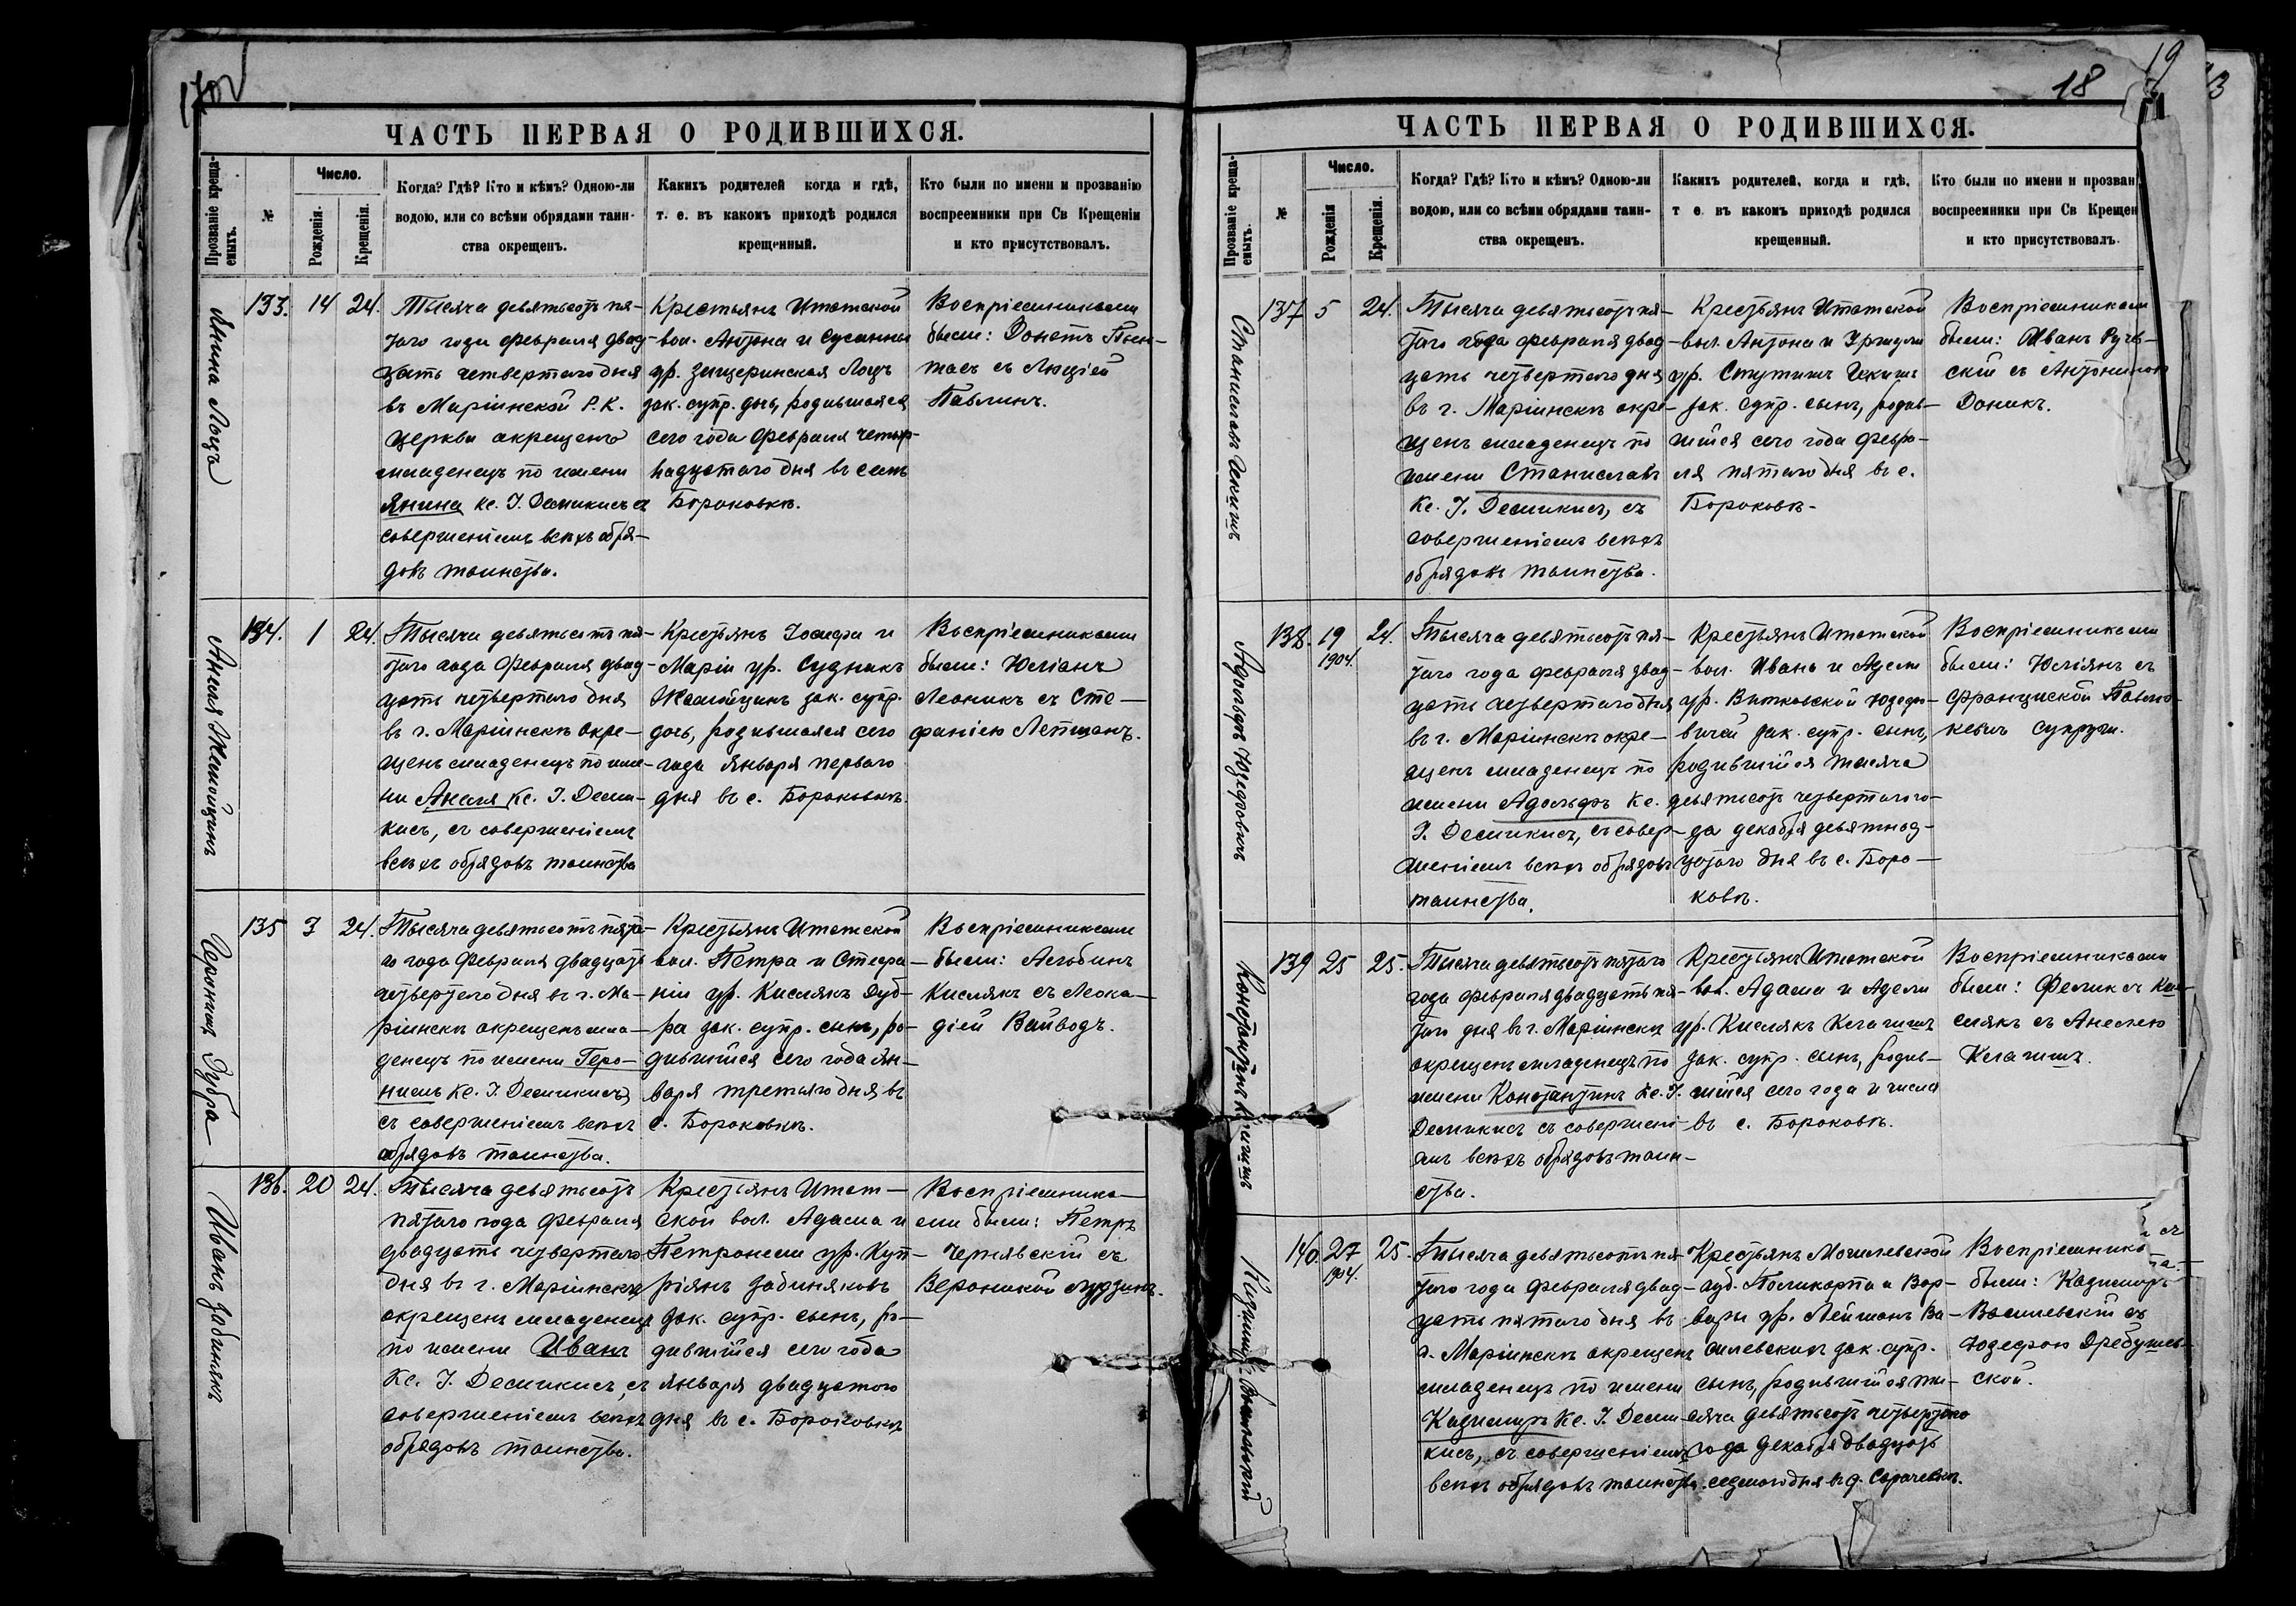 ЧАСТЬ ПЕРВАЯ О РОДИВШИХСЯ.
Прозваніе креща-
емыхъ.
№
Число.
Рожденія.
Крещенія.
Когда? Гдѣ? Кто и кѣмъ? Одною-ли
водою, или со всѣми обрядами таин-
ства окрещенъ.
Какихъ родителей когда и гдѣ,
т. е. въ какомъ приходѣ родился
крещенный.
Кто были по имени и прозванію
воспреемники при Св Крещеніи
и кто присутствовалъ.
Янина Лоцъ
133. 14 24.
Тысяча девятьсотъ пя-
таго года февраля двад-
цать четвертаго дня
въ Маріинской Р. К.
церкви окрещенъ
младенецъ по имени
Янина Кс. І. Демикисъ съ
совершеніемъ всѣхъ обря-
довъ таинства.
Крестьянъ Итатской
вол. Антона и Сусанны
ур. Лоцъ
зак. супр. дочь, родившаяся
сего года февраля четыр-
надцатаго дня въ селѣ
Бороковкѣ.
Воспріемниками
были: Донатъ
съ Люціей
Павлинъ.
Анеля Жемойцинъ
134. 1 24.
Тысяча девятьсотъ пя-
таго года февраля двад-
цать четвертаго дня
въ г. Маріинскѣ окре-
щенъ младенецъ по име-
ни Анеля Кс. І. Деми-
кисъ, съ совершеніемъ
всѣхъ обрядовъ таинства
Крестьянъ Іосифа и
Маріи ур. Судникъ
Жемойцинъ зак. супр.
дочь, родившаяся сего
года января перваго
дня въ с. Бороковкѣ.
Воспріемниками
были: Юліанъ
Леоникъ съ Сте-
фаніею Лепшанъ.
Геронимъ Дубра
135 3 24.
Тысяча девятьсотъ пята-
го года февраля двадцать
четвертаго дня въ г. Ма-
ріинскѣ окрещенъ мла-
денецъ по имени Геро-
нимъ Кс. І. Демикисъ,
съ совершеніемъ всѣхъ
обрядовъ таинства.
Крестьянъ Итатской
вол. Петра и Стефа-
ніи ур. Кислякъ Дуб-
ра зак. супр. сынъ, ро-
дившійся сего года ян-
варя третьяго дня въ
с. Бороковкѣ.
Воспріемниками
были: Альбинъ
Кислякъ съ Леока-
діей Вайводъ.
Иванъ Забинякъ
136. 20 24.
Тысяча девятьсотъ
пятаго года февраля
двадцать четвертаго
дня въ г. Маріинскѣ
окрещенъ младенецъ
по имени Иванъ
Кс. І. Демикисъ, съ
совершеніемъ всѣхъ
обрядовъ таинства.
Крестьянъ Итат-
ской вол. Адама и
Петронели ур. Куп-
ріянъ Забиняковъ
зак. супр. сынъ, ро-
дившійся сего года
января двадцатаго
дня въ с. Бороковкѣ
Воспріемника-
ми были: Петръ
Чернявскій съ
Вероникой Лурзинъ.
18
19
ЧАСТЬ ПЕРВАЯ О РОДИВШИХСЯ.
Прозваніе креща-
емыхъ.
№
Число.
Рожденія
Крещенія.
Когда? Гдѣ? Кто и кѣмъ? Одною-ли
водою, или со всѣми обрядами таин-
ства окрещенъ.
Какихъ родителей, когда и гдѣ,
т е. въ какомъ приходѣ родился
крещенный.
Кто были по имени и прозван
воспреемники при Св Крещен
и кто присутствовалъ.
Станиславъ Чекишъ
137 5 24.
Тысяча девятьсотъ пя-
таго года февраля двад-
цать четвертаго дня
въ г. Маріинскѣ окре-
щенъ младенецъ по
имени Станиславъ
Кс. І. Демикисъ, съ
совершеніемъ всѣхъ
обрядовъ таинства.
Крестьянъ Итатской
вол. Антона и Уршули
ур. Чекишъ
зак. супр. сынъ, родив-
шійся сего года февра-
ля пятаго дня въ с.
Бороковкѣ-
Воспріемниками
были: Иванъ Ручев-
скій съ Антониною
Доникъ.
Адольфъ Юзефовичъ
138. 19
1904. 24.
Тысяча девятьсотъ пя-
таго года февраля двад-
цать четвертаго дня
въ г. Маріинскѣ окре-
щенъ младенецъ по
имени Адольфъ Кс.
І. Демикисъ, съ совер-
шеніемъ всѣхъ обрядовъ
таинства.
Крестьянъ Итатской
вол. Ивана и Адели
ур. Витковской Юзефо-
вичей зак. супр. сынъ,
родившійся тысяча
девятьсотъ четвертаго го-
да декабря девятнад-
цатаго дня въ с. Боро-
ковкѣ.
Воспріемниками
были: Юліянъ съ
Францишкой Павлю-
кевичъ супруги.
Константинъ
139 25 25.
Тысяча девятьсотъ пятаго
года февраля двадцать пя-
таго дня въ г. Маріинскѣ
окрещенъ младенецъ по
имени Константинъ Кс. І.
Демикисъ съ совершені-
емъ всѣхъ обрядовъ таин-
ства.
Крестьянъ Итатской
вол. Адама и Адели
ур. Кислякъ Клагишъ
зак. супр. сынъ, родив-
шійся сего года и числа
въ с. Бороковкѣ.
Воспріемниками
были: Феликсъ Ки-
слякъ съ Анелею
Клагишъ.
Казиміръ Василевскій
140. 27
1904. 25.
Тысяча девятьсотъ пя-
таго года февраля двад-
цать пятаго дня въ
г. Маріинскѣ окрещенъ
младенецъ по имени
Казиміръ Кс. І. Деми-
кисъ, съ совершеніемъ
всѣхъ обрядовъ таинства.
Крестьянъ Могилевской
губ. Поликарпа и Вар-
вары ур. Лейманъ Ва-
силевскихъ зак. супр.
сынъ, родившійся ты-
сяча девятьсотъ четвертаго
года декабря двадцать
седьмого дня въ д. Сорачевкѣ.
Воспріемника
были: Казиміръ
Василевскій съ
Юзефою Дребушев-
ской.